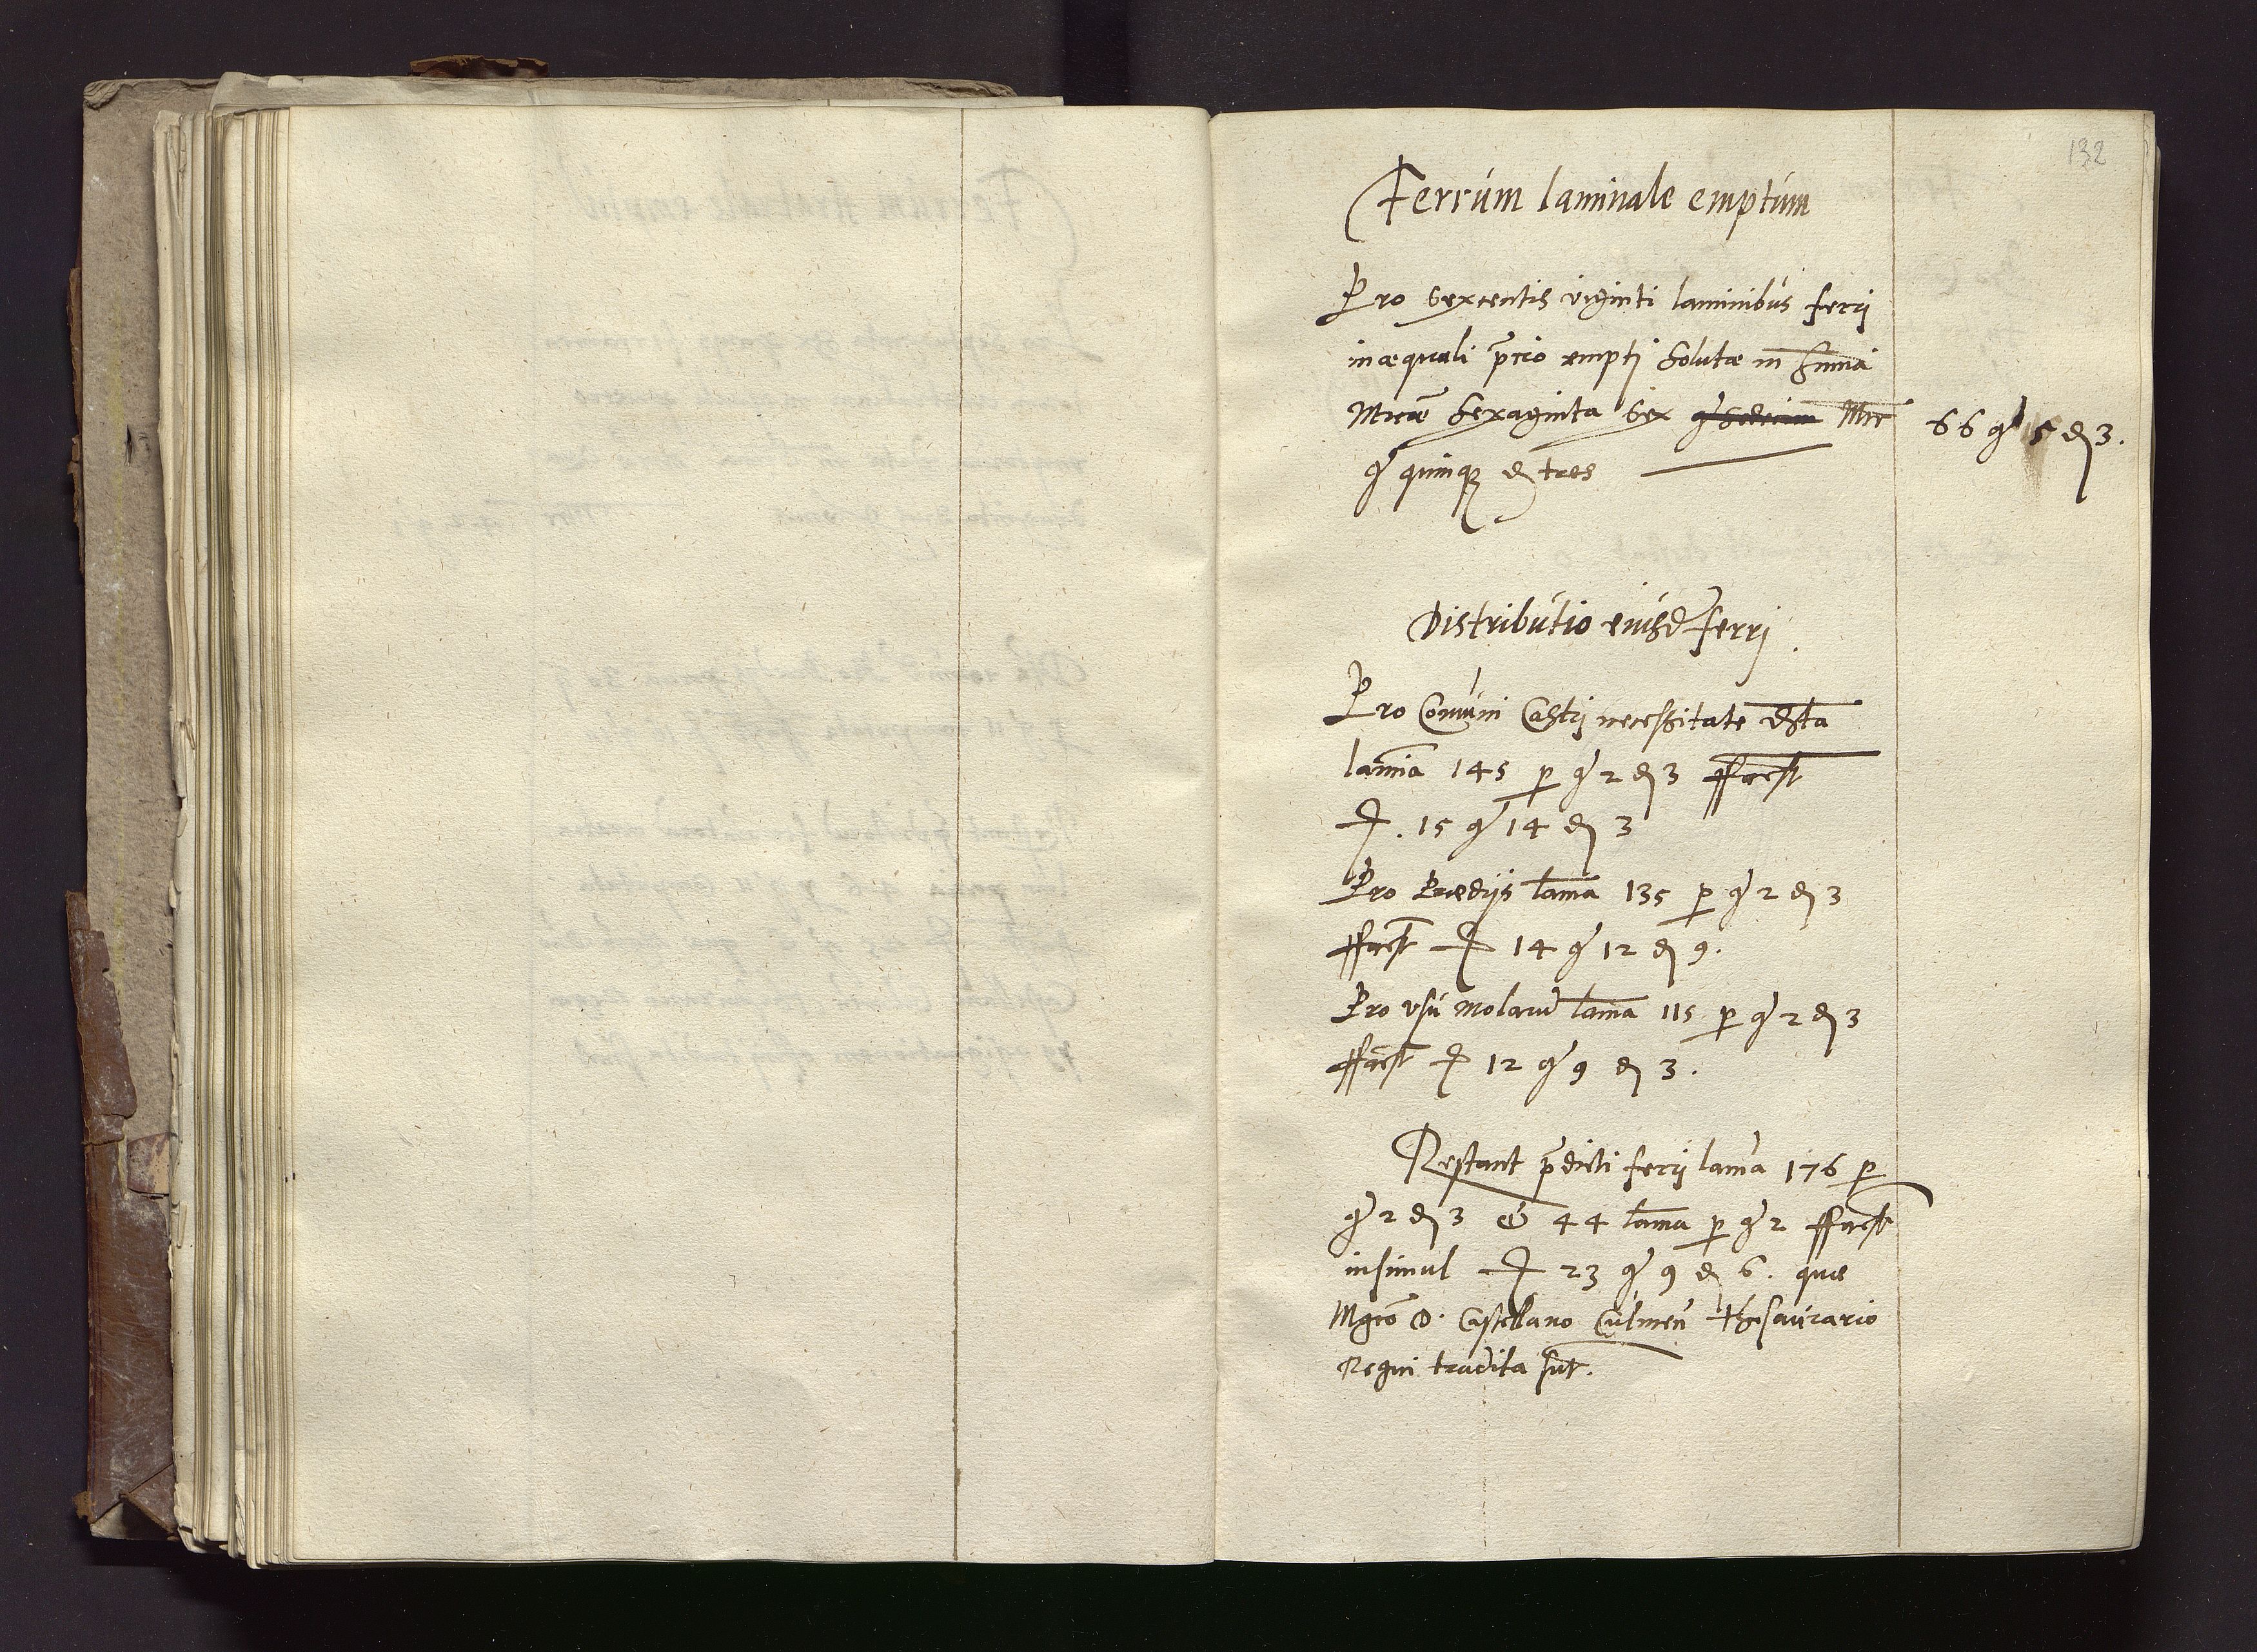 132
Ferrum laminale emptum
Pro sexcentis viginti laminibus ferrj
inæquali p̄cio emptj solutæ in Summa
Mrcæ sexaginta sex Mrc 66 gͬ 5 ₰ 3.
gͬ quinqȝ ₰ tres
Distributio eiusd ferrj.
Pro Comuni Castrj necessitate dsta
lamīa 145 p gͬ 2 ₰ 3 ffacst
f. 15 gͬ 14 ₰ 3
Pro Prædijs lamīa 135 p gͬ 2 ₰ 3
ffacst f 14 gͬ 12 ₰ 9.
Pro vsu molarū lamīa 115 p gͬ 2 ₰ 3
ffacst f 12 gͬ 9 ₰ 3.
Restant p̄dicti ferrj lamīa 176 p
gͬ 2 ₰ 3 & 44 lamīa p gͬ 2 ffacst
insimul f 23 gͬ 9 ₰ 6. quæ
Mgco D. Castellano Culmeñ Thesaurario
Regni tradita sūt.